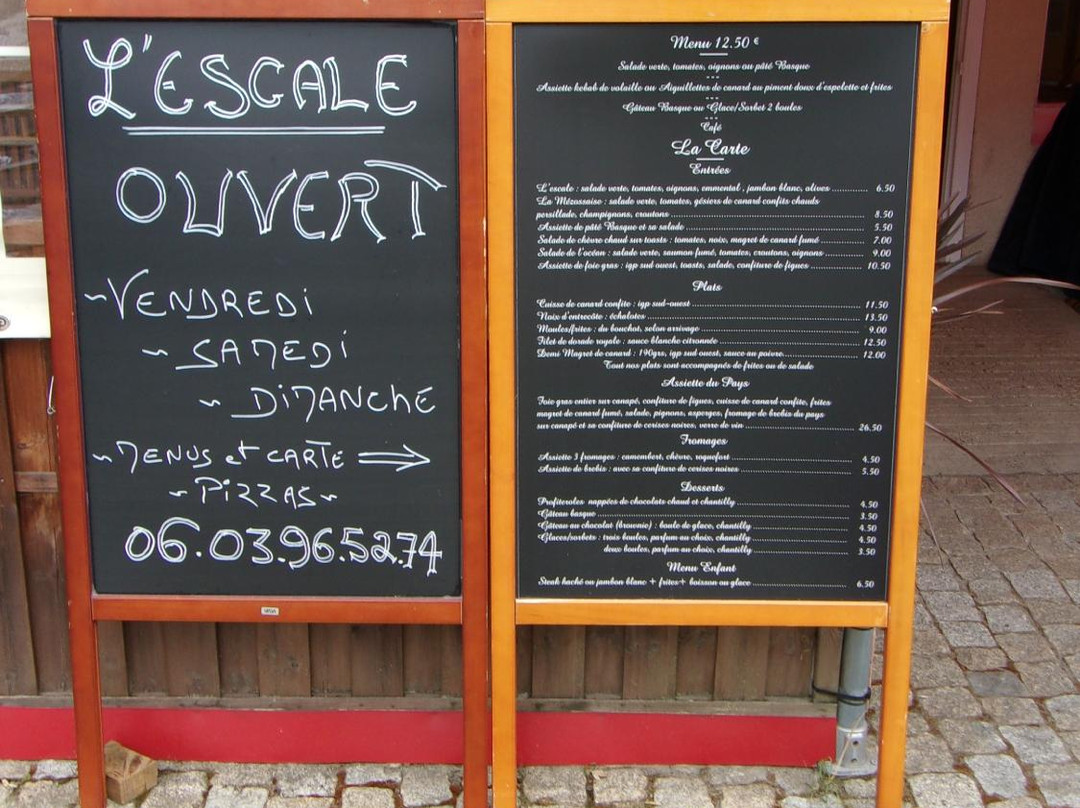 L'ESCALE
OUVERT
~ VENDREDI
~ SAMEDI
~ DIMANCHE
~ MENUS et CARTE ⟹
~ PIZZAS ~
06.03.96.52.74
Menu 12.50 €
Salade verte, tomates, oignons ou pâté Basque
---
Assiette kebab de volaille ou Aiguillettes de canard au piment doux d'espelette et frites
---
Gâteau Basque ou Glace/Sorbet 2 boules
---
Café
La Carte
Entrées
L'escale : salade verte, tomates, oignons, emmental , jambon blanc, olives ............ 6.50
La Mézossaise : salade verte, tomates, gésiers de canard confits chauds
persillade, champignons, croutons ............ 8.50
Assiette de pâté Basque et sa salade ............ 5.50
Salade de chèvre chaud sur toasts : tomates, noix, magret de canard fumé ............ 7.00
Salade de l'océan : salade verte, saumon fumé, tomates, croutons, oignons ............ 9.00
Assiette de foie gras : igp sud ouest, toasts, salade, confiture de figues ............ 10.50
Plats
Cuisse de canard confite : igp sud-ouest ............ 11.50
Noix d'entrecôte : échalotes ............ 13.50
Moules/frites : du bouchot, selon arrivage ............ 9.00
Filet de dorade royale : sauce blanche citronnée ............ 12.50
Demi Magret de canard : 190grs, igp sud ouest, sauce au poivre ............ 12.00
Tout nos plats sont accompagnés de frites ou de salade
Assiette du Pays
Foie gras entier sur canapé, confiture de figues, cuisse de canard confite, frites
magret de canard fumé, salade, pignons, asperges, fromage de brebis du pays
sur canapé et sa confiture de cerises noires, verre de vin ............ 26.50
Fromages
Assiette 3 fromages : camembert, chèvre, roquefort ............ 4.50
Assiette de brebis : avec sa confiture de cerises noires ............ 5.50
Desserts
Profiteroles nappées de chocolats chaud et chantilly ............ 4.50
Gâteau basque ............ 3.50
Gâteau au chocolat (brownie) : boule de glace, chantilly ............ 4.50
Glaces/sorbets : trois boules, parfum au choix, chantilly ............ 4.50
deux boules, parfum au choix, chantilly ............ 3.50
Menu Enfant
Steak haché ou jambon blanc + frites+ boisson ou glace ............ 6.50